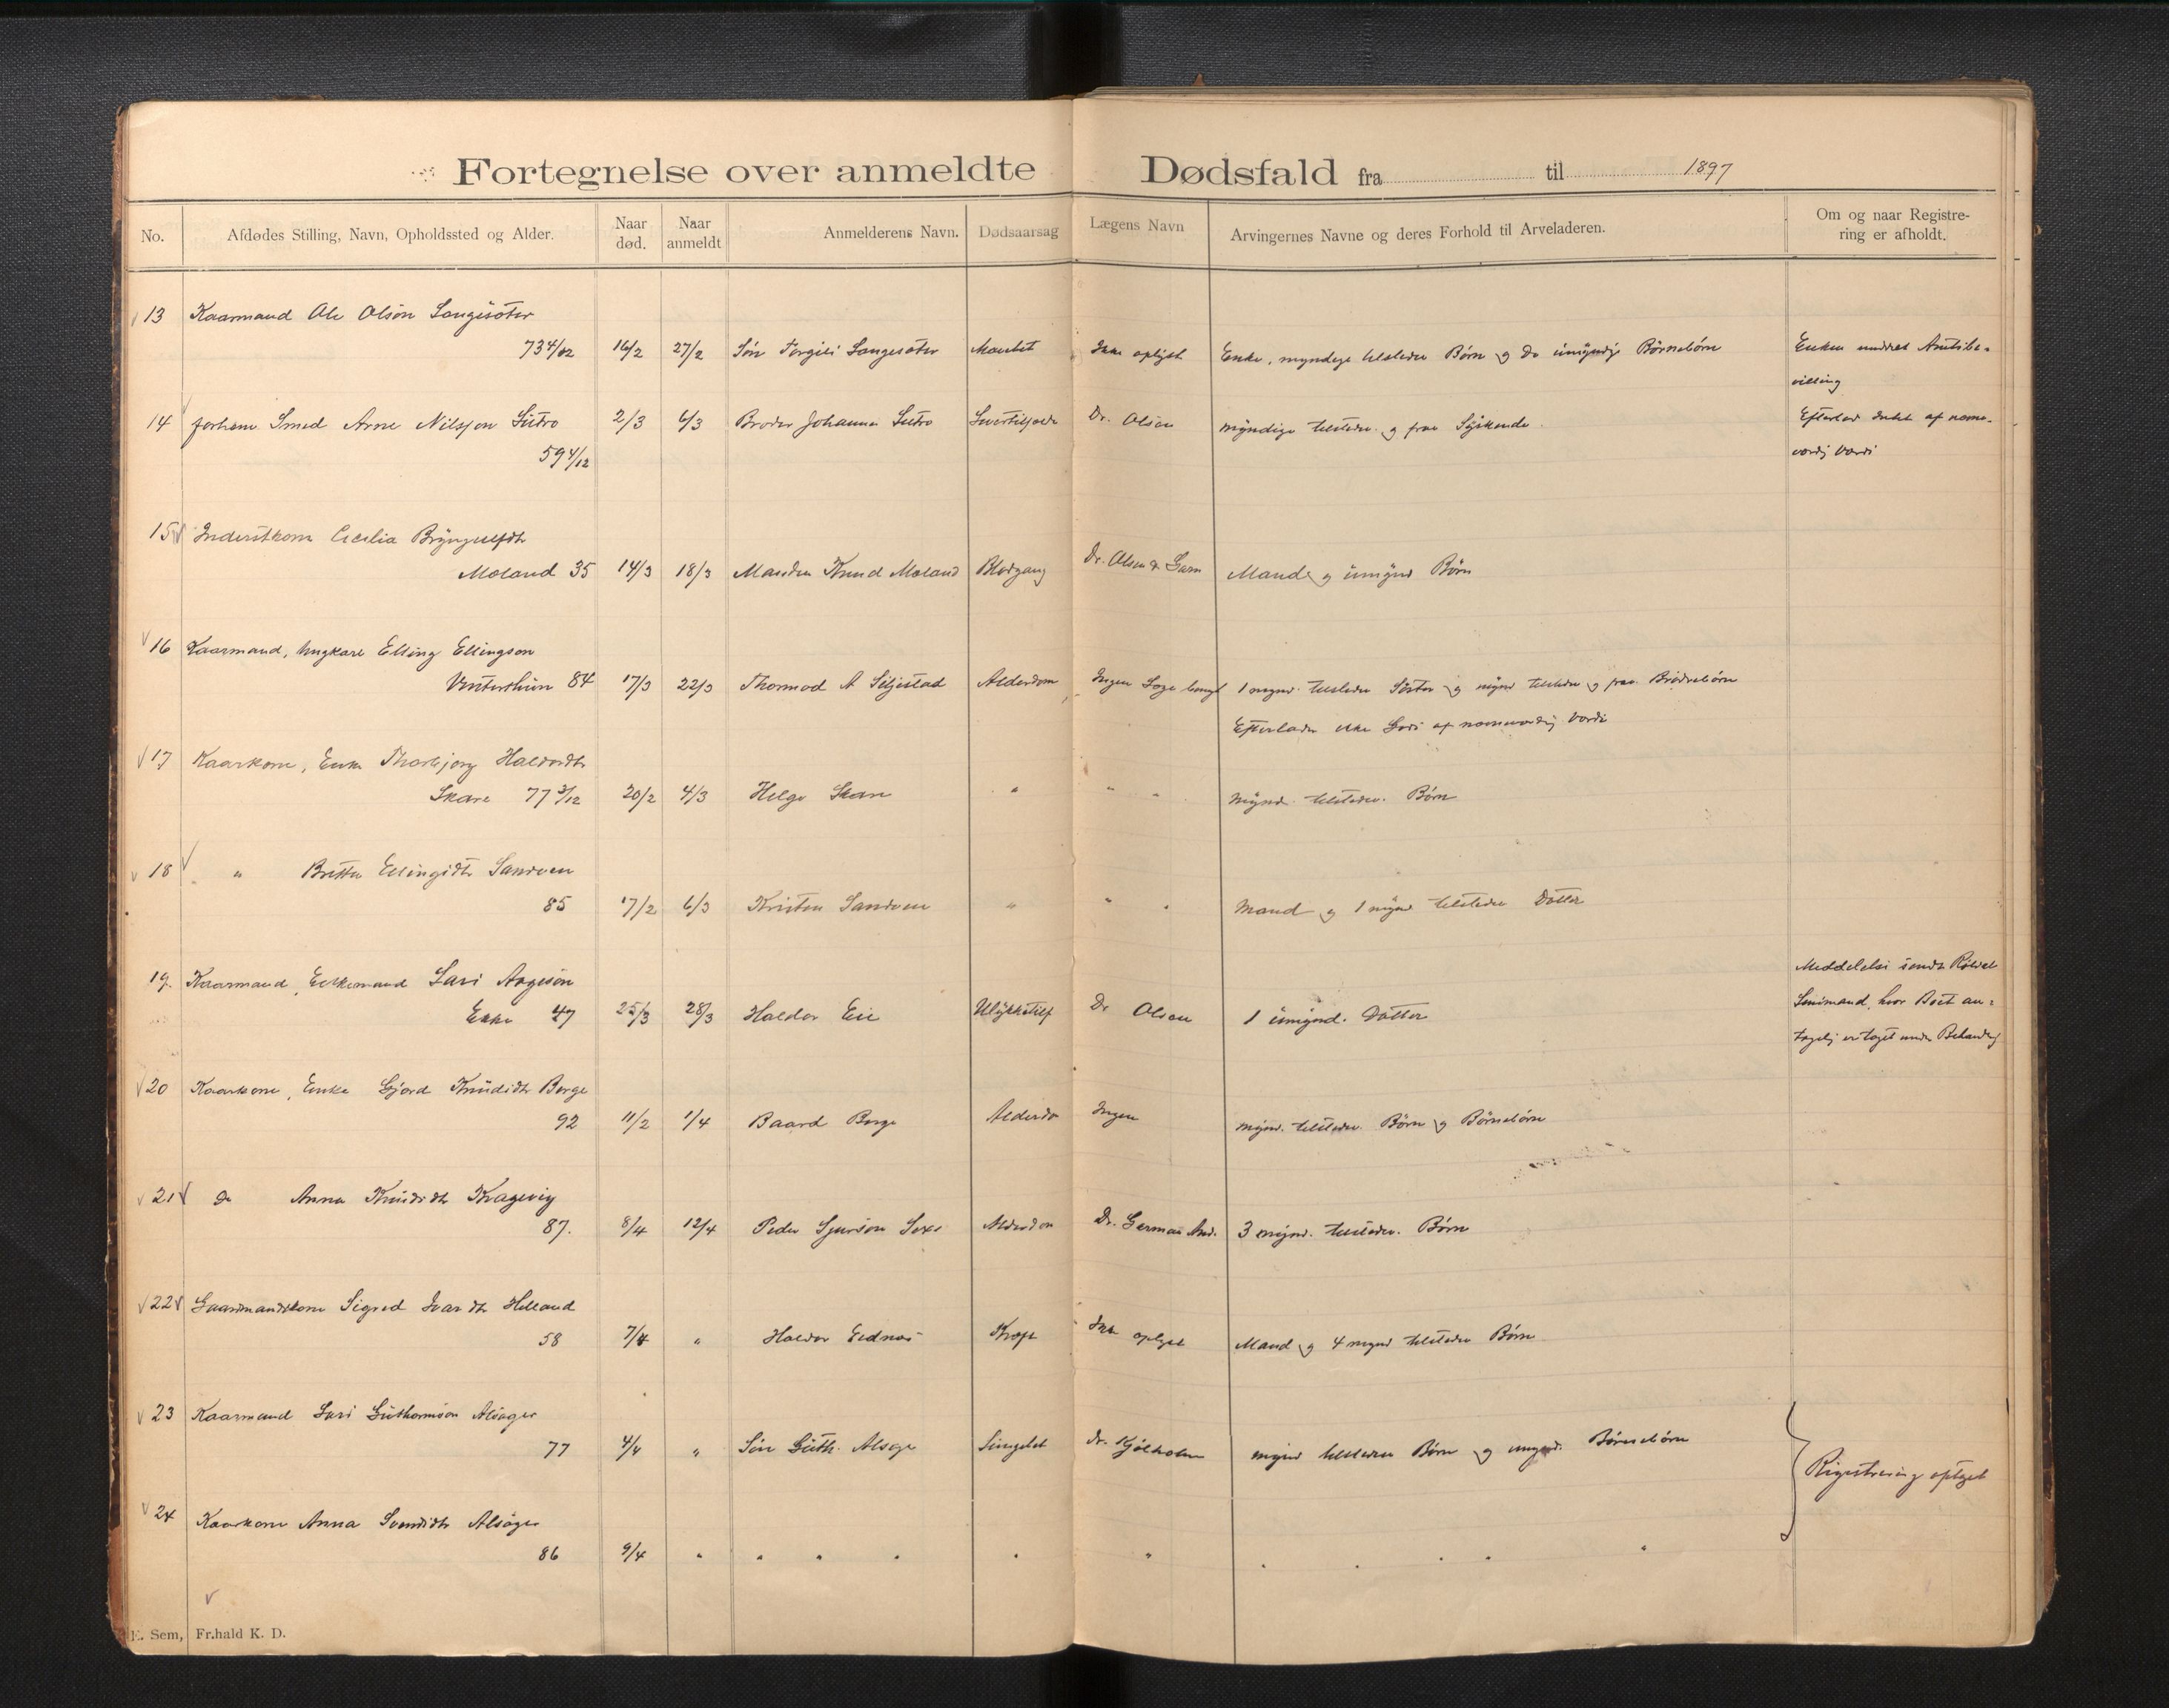 Fortegnelse over anmeldte Dødsfald fra til 1897
No. Afdødes Stilling, Navn, Opholdssted og Alder. Naar død. Naar anmeldt Anmelderens Navn. Dødsaarsag Lægens Navn Arvingernes Navne og deres Forhold til Arveladeren. Om og naar Registrering er afholdt.
13 Kaarmand Ole Olsøn Langesæter
73 4/12 16/2 27/2 Søn Torgils Langesæter Ikke oplyst Enke, myndige tilstedev Børn og do umyndige Børnebørn Enken meddelt Amtsbe-
villing
14 forhem Smed Arne Nilsson Sutro 2/3 6/3 Broder Johannes Sutro Dr. Olsen myndige tilstedev. og frav Syskende. Efterlod Intet af nævne-
59 4/12 værdig Værdi
15 Inderstkone Cecilia Bryngelsdtr
Moland 35 14/3 18/3 Manden Knud Moland Blodgang Dr. Olsen & Garm Mand og umynd Børn
16 Kaarmand, Ungkarl Elling Ellingsøn
Vinterthun 84 17/3 22/3 Thormod A Seljestad Alderdom Ingen Læge benyt 1 mynd. tilstedev Søster og mynd tilstedev og frav. Brødrebørn
Efterlader ikke Gods af nævneværdig Værdi
17 Kaarkone, Enke Thorbjørg Haldordtr
Skare 77 3/12 20/2 4/3 Helge Skare " " " mynd. tilstedev. Børn
18 " Britta Ellingsdtr Sandven
85 17/2 6/3 Kristen Sandven " " " Mand og 1 mynd tilstedev Datter
19. Kaarmand, Enkemand Lars Aagesøn Meddelelse sendt Røldal
Eike 47 25/3 28/3 Haldor Eie Ulykkestilf Dr Olsen 1 umynd. Datter Lensmand, hvor Boet an-
tagelig er taget under Behandlg
20 Kaarkone, Enke Gjørd Knudsdtr Berge
92 11/2 1/4 Baard Berge Alderdo Ingen mynd. tilstedev. Børn og Børnebørn
21 do Anna Knudsdtr Kragevig
87. 8/4 12/4 Peder Sjursøn Sexe Alderdom Dr. German And. 3 mynd. tilstedev. Børn
22 Gaardmandskone Sigrid Ivarsdtr Helland
58 7/4 " Haldor Eidnæs Kræft Ikke oplyst Mand og 4 mynd tilstedev Børn
23 Kaarmand Lars Guthormsøn Alsager
77 4/4 " Søn Guth. Alsager Dr. Kjølholm mynd tilstedev Børn og umynd. Børnebørn
Registrering optaget
24 Kaarkone Anna Svendsdtr Alsager
86 9/4 " " " " " " " " " " "
E. Sem, Fr.hald K. D.